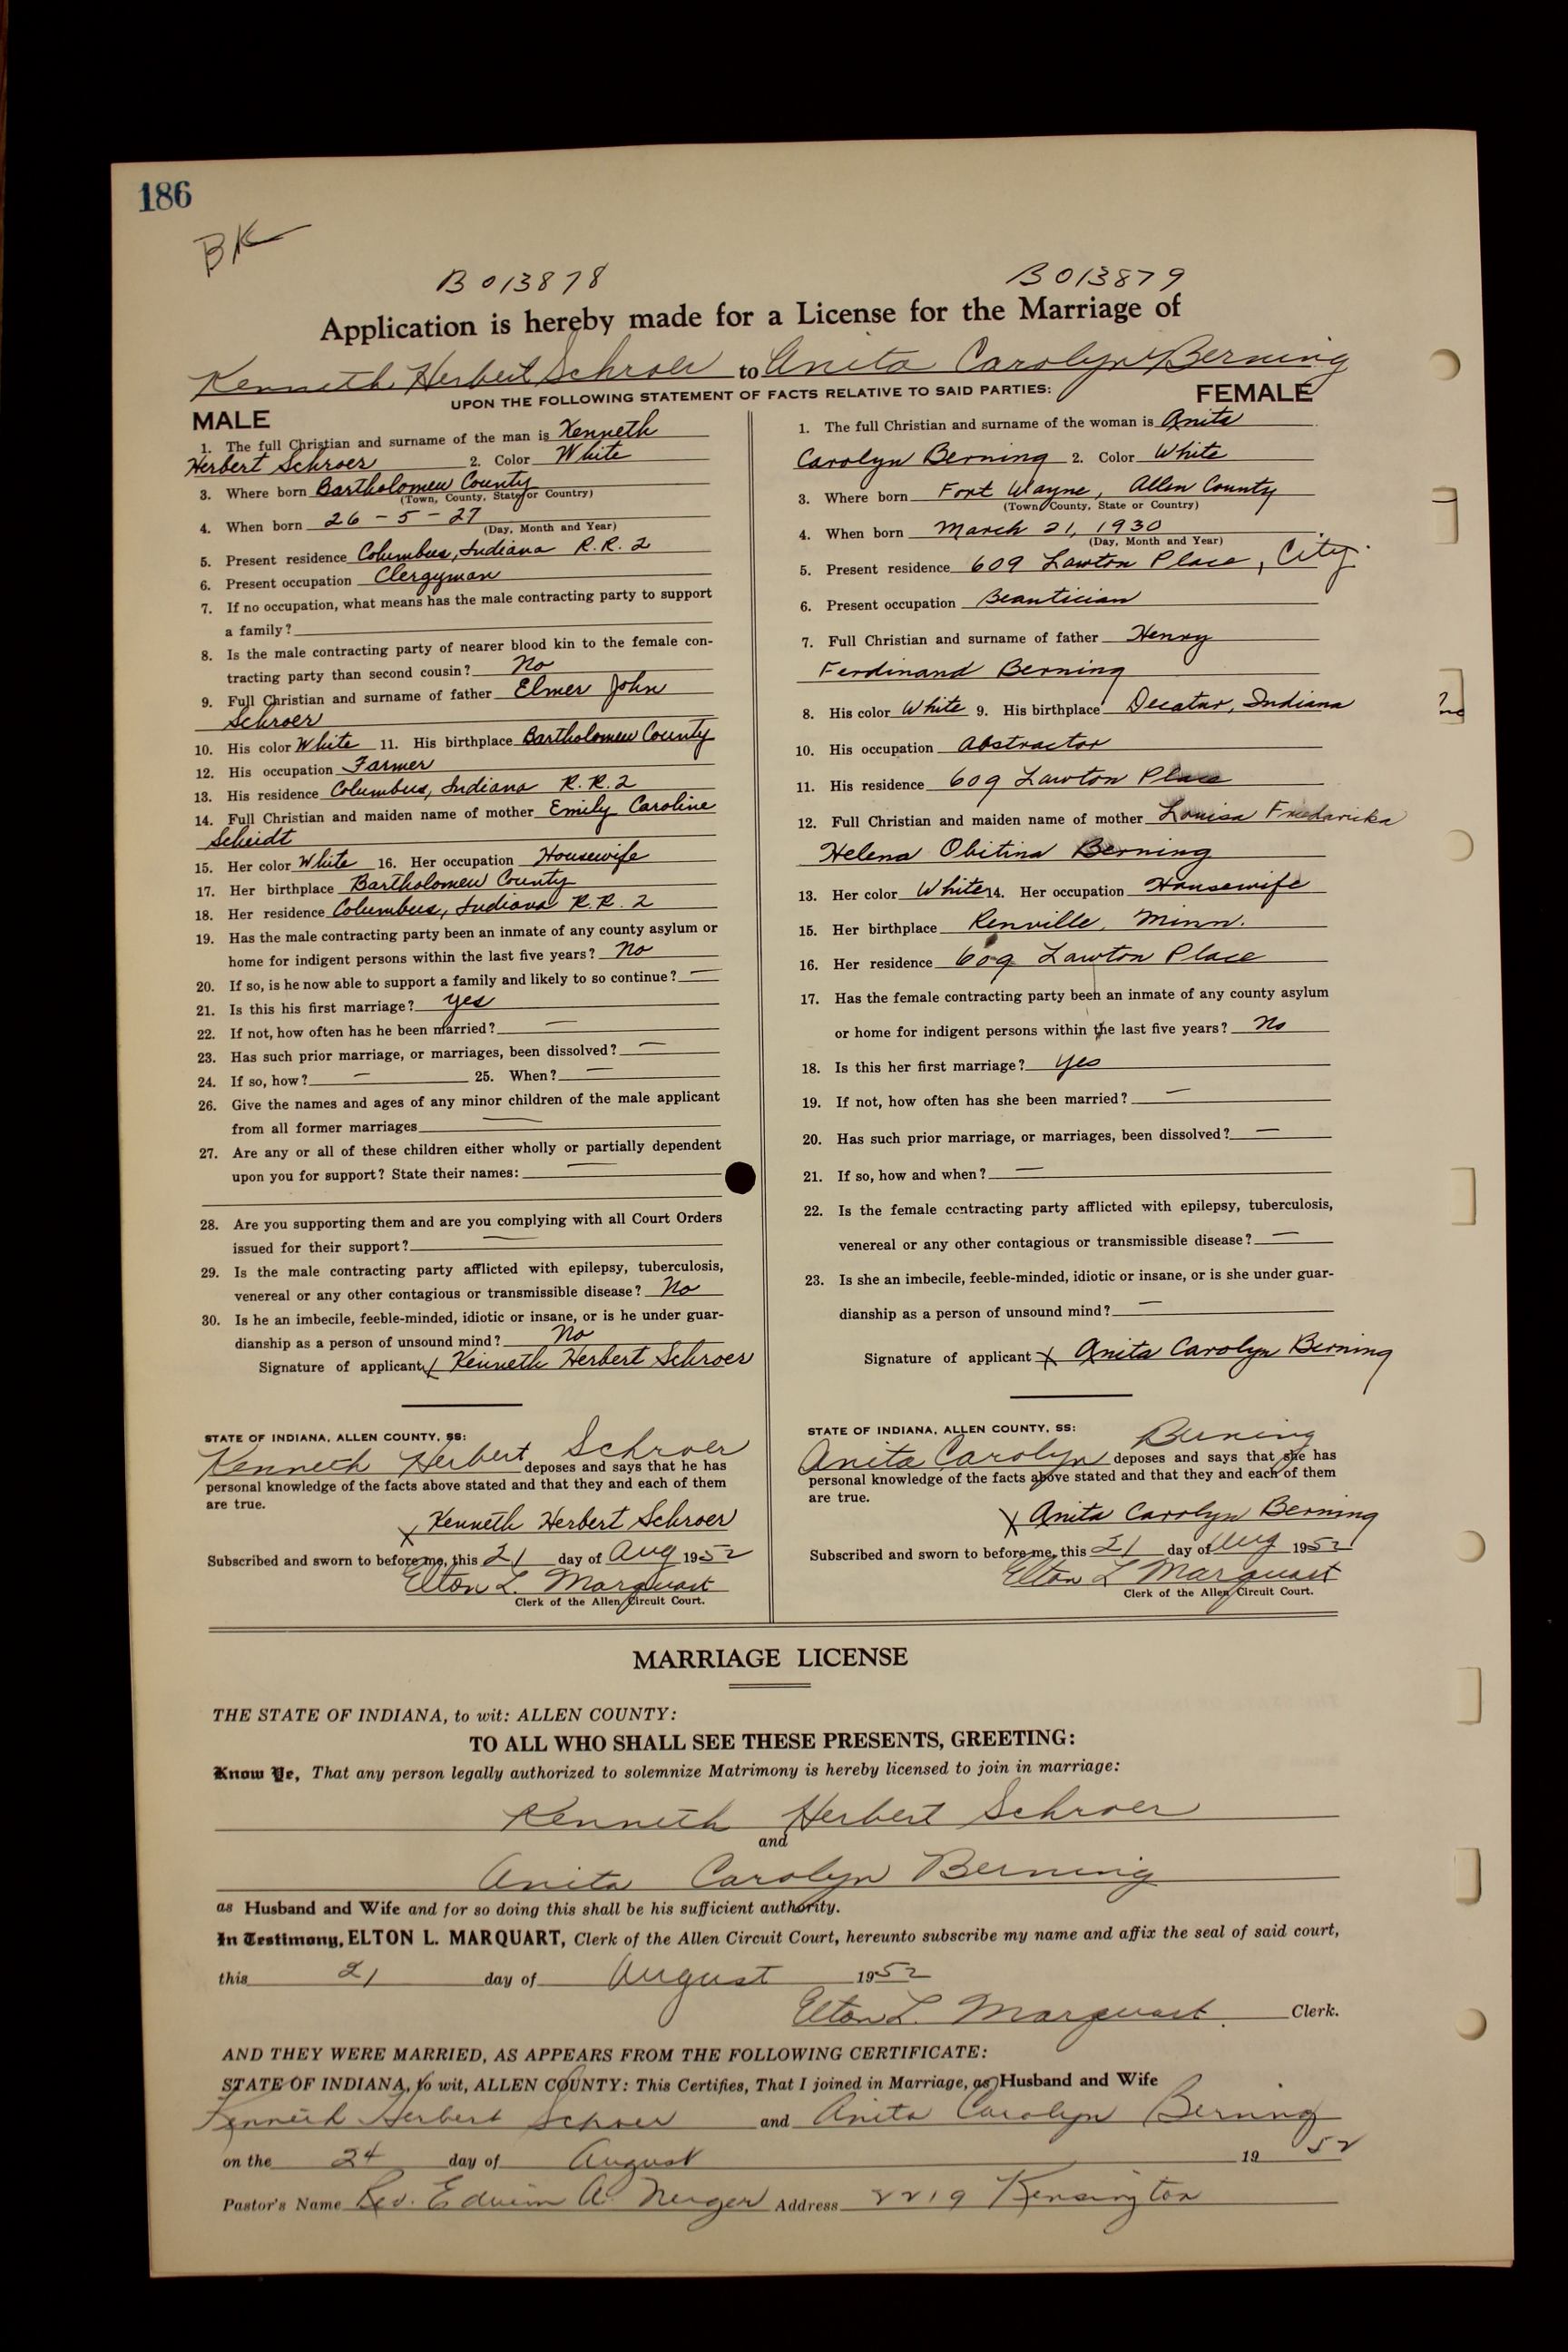 186
BK
B 013878 B 013879
Application is hereby made for a License for the Marriage of
Kenneth Herbert Schroer to Anita Carolyn Berning
UPON THE FOLLOWING STATEMENT OF FACTS RELATIVE TO SAID PARTIES:
MALE
1. The full Christian and surname of the man is Kenneth
Herbert Schroer 2. Color White
3. Where born Bartholomew County
(Town, County, State or Country)
4. When born 26 - 5 - 27
(Day, Month and Year)
5. Present residence Columbus, Indiana R.R. 2
6. Present occupation Clergyman
7. If no occupation, what means has the male contracting party to support
a family?
8. Is the male contracting party of nearer blood kin to the female con-
tracting party than second cousin? No
9. Full Christian and surname of father Elmer John
Schroer
10. His color White 11. His birthplace Bartholomew County
12. His occupation Farmer
13. His residence Columbus, Indiana R.R. 2
14. Full Christian and maiden name of mother Emily Caroline
Scheidt
15. Her color White 16. Her occupation Housewife
17. Her birthplace Bartholomew County
18. Her residence Columbus, Indiana R.R. 2
19. Has the male contracting party been an inmate of any county asylum or
home for indigent persons within the last five years? No
20. If so, is he now able to support a family and likely to so continue? —
21. Is this his first marriage? yes
22. If not, how often has he been married? —
23. Has such prior marriage, or marriages, been dissolved? —
24. If so, how? — 25. When? —
26. Give the names and ages of any minor children of the male applicant
from all former marriages —
27. Are any or all of these children either wholly or partially dependent
upon you for support? State their names: —
28. Are you supporting them and are you complying with all Court Orders
issued for their support? —
29. Is the male contracting party afflicted with epilepsy, tuberculosis,
venereal or any other contagious or transmissible disease? No
30. Is he an imbecile, feeble-minded, idiotic or insane, or is he under guar-
dianship as a person of unsound mind? No
Signature of applicant x Kenneth Herbert Schroer
STATE OF INDIANA, ALLEN COUNTY, SS:
Kenneth Herbert Schroer deposes and says that he has
personal knowledge of the facts above stated and that they and each of them
are true.
x Kenneth Herbert Schroer
Subscribed and sworn to before me, this 21 day of Aug 1952
Elton L. Marquart
Clerk of the Allen Circuit Court.
FEMALE
1. The full Christian and surname of the woman is Anita
Carolyn Berning 2. Color White
3. Where born Fort Wayne, Allen County
(Town, County, State or Country)
4. When born March 21, 1930
(Day, Month and Year)
5. Present residence 609 Lawton Place, City.
6. Present occupation Beautician
7. Full Christian and surname of father Henry
Ferdinand Berning
8. His color White 9. His birthplace Decatur, Indiana
10. His occupation Abstractor
11. His residence 609 Lawton Place
12. Full Christian and maiden name of mother Louisa Fredaricka
Helena Obitina Berning
13. Her color White 14. Her occupation Housewife
15. Her birthplace Renville, Minn.
16. Her residence 609 Lawton Place
17. Has the female contracting party been an inmate of any county asylum
or home for indigent persons within the last five years? No
18. Is this her first marriage? yes
19. If not, how often has she been married? —
20. Has such prior marriage, or marriages, been dissolved? —
21. If so, how and when? —
22. Is the female contracting party afflicted with epilepsy, tuberculosis,
venereal or any other contagious or transmissible disease? —
23. Is she an imbecile, feeble-minded, idiotic or insane, or is she under guar-
dianship as a person of unsound mind? —
Signature of applicant x Anita Carolyn Berning
STATE OF INDIANA, ALLEN COUNTY, SS:
Anita Carolyn Berning deposes and says that she has
personal knowledge of the facts above stated and that they and each of them
are true.
x Anita Carolyn Berning
Subscribed and sworn to before me, this 21 day of Aug 1952
Elton L Marquart
Clerk of the Allen Circuit Court.
MARRIAGE LICENSE
THE STATE OF INDIANA, to wit: ALLEN COUNTY:
TO ALL WHO SHALL SEE THESE PRESENTS, GREETING:
Know Ye, That any person legally authorized to solemnize Matrimony is hereby licensed to join in marriage:
Kenneth Herbert Schroer
and
Anita Carolyn Berning
as Husband and Wife and for so doing this shall be his sufficient authority.
In Testimony, ELTON L. MARQUART, Clerk of the Allen Circuit Court, hereunto subscribe my name and affix the seal of said court,
this 21 day of August 1952
Elton L. Marquart. Clerk.
AND THEY WERE MARRIED, AS APPEARS FROM THE FOLLOWING CERTIFICATE:
STATE OF INDIANA, to wit, ALLEN COUNTY: This Certifies, That I joined in Marriage, as Husband and Wife
Kenneth Herbert Schroer and Anita Carolyn Berning
on the 24 day of August 1952
Pastor's Name Rev. Edwin A. Nerger Address 2219 Kensington